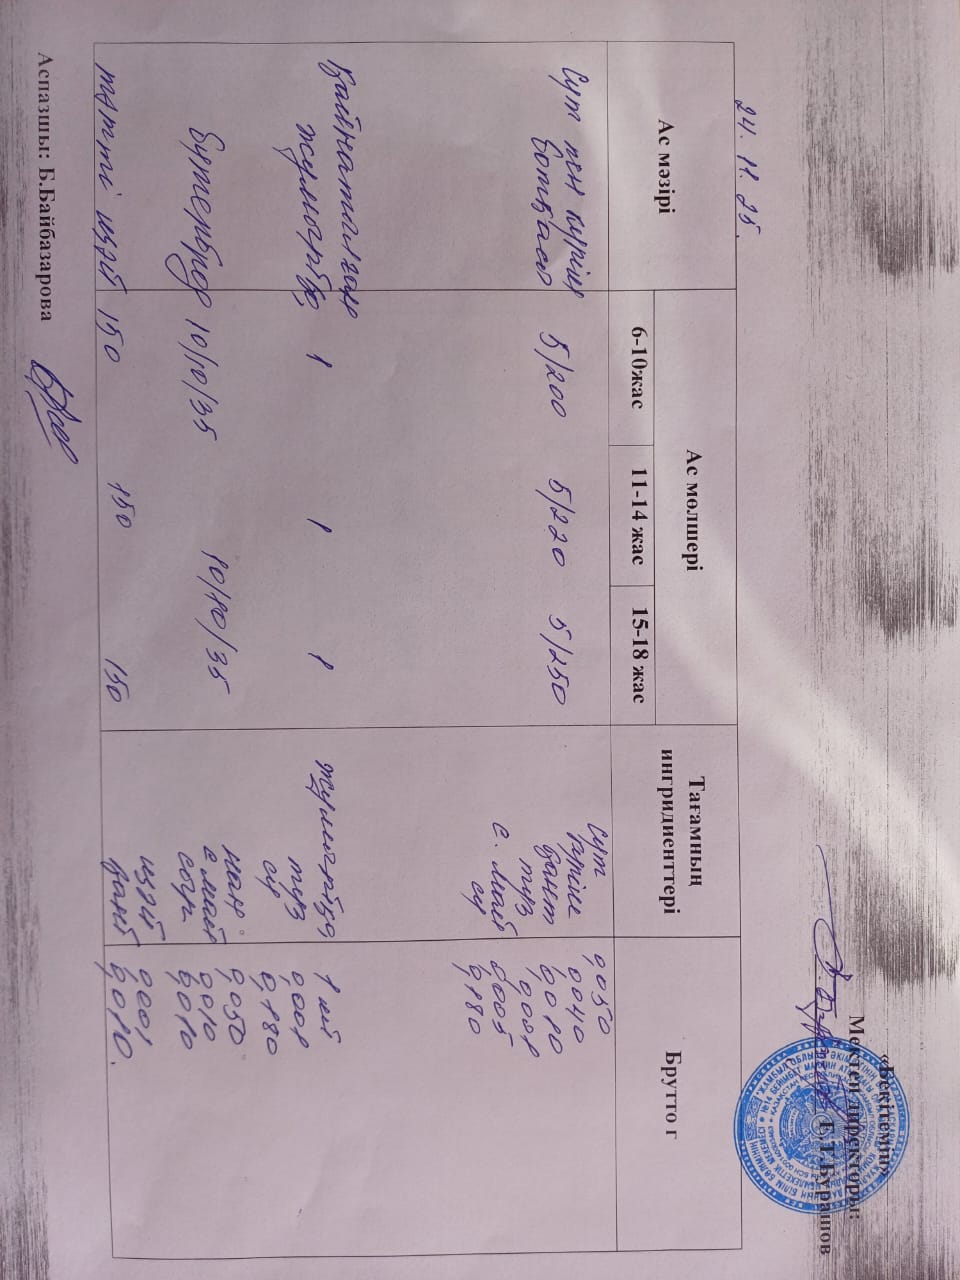 «Бекітемін»
Мектеп директоры:
Е.Т.Бурашов
24. 11. 25.
Ас мәзірі
Ас мөлшері
Тағамның ингридиенттері
Брутто г
6-10жас
11-14 жас
15-18 жас
Сүт пен күріш
ботқасы
5/200
5/220
5/250
Сүт 0,050
Күріш 0,040
қант 0,010
тұз
с. май 0,005
су 0,180
Қайнатылған
жұмыртқа
1
1
1
жұмыртқа 1
тұз
су 0,180
Бутерброд
10/10/35
10/10/35
нан 0,050
с май 0,010
сыр 0,010
тәтті шәй
150
150
150
шәй 0,001
қант 0,010.
Аспазшы: Б.Байбазарова